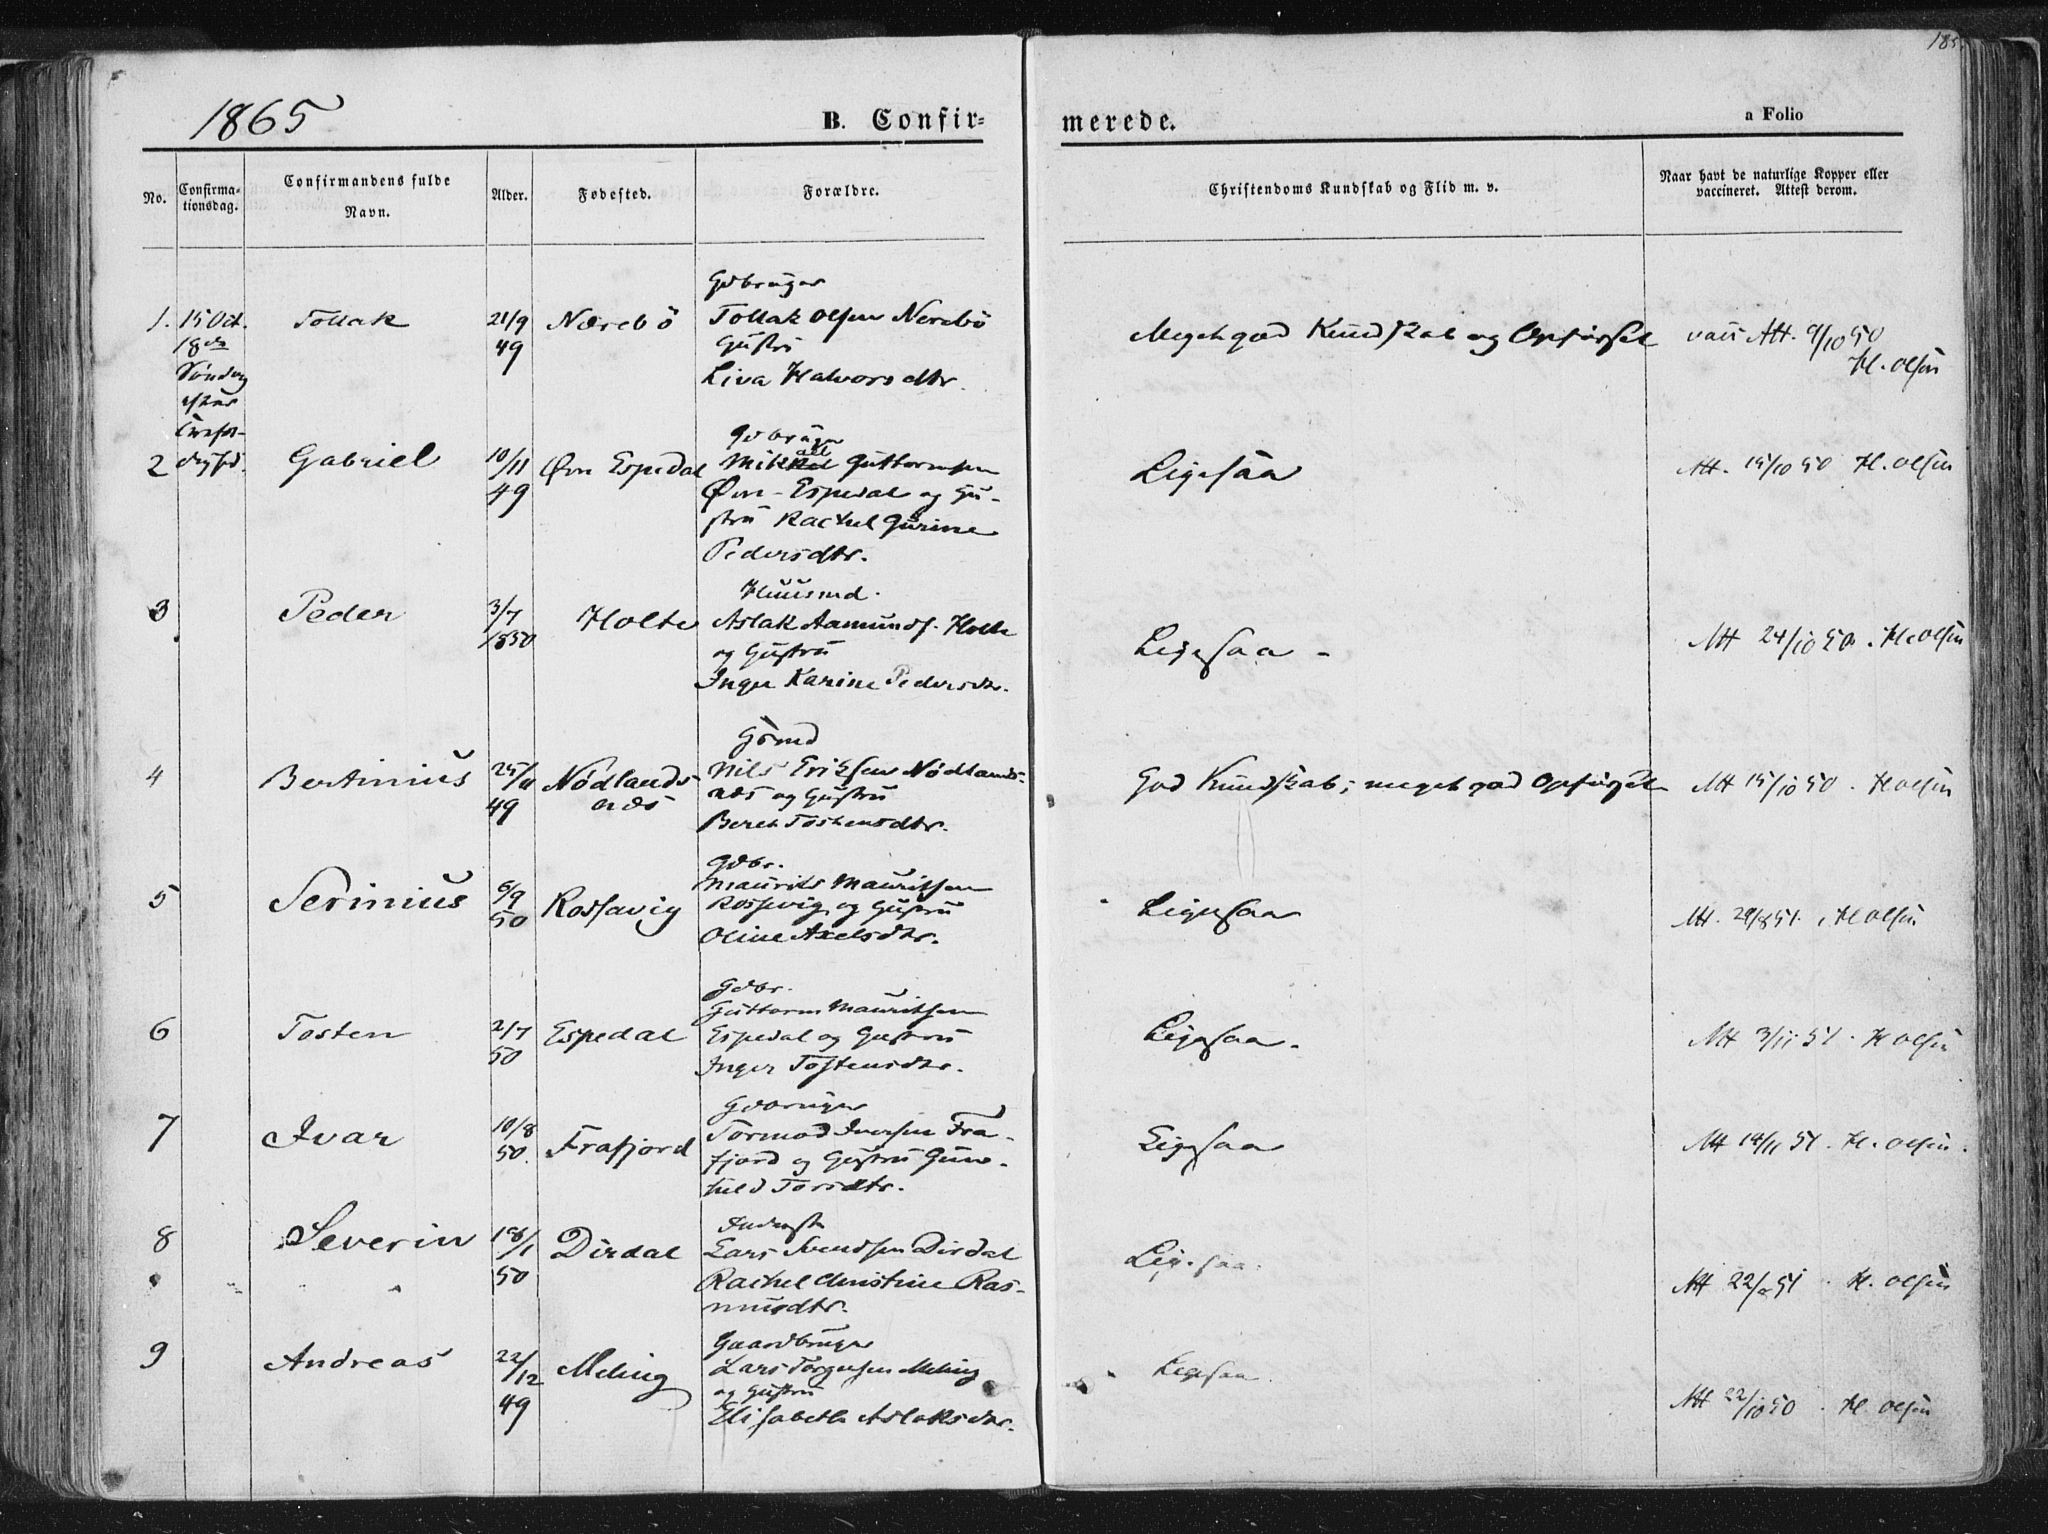 185.
1865
B. Confir-
merede.
a Folio
No.
Confirma-
tionsdag.
Confirmandens fulde
Navn.
Alder.
Fødested.
Forældre.
Christendoms Kundskab og Flid m. v.
Naar havt de naturlige Kopper eller
vaccineret. Attest derom.
1. 15 Oct.
18de
Søndag
efter
Trefol-
dighed.
Tollak
21/9
49
Nærebö
Gdbruger
Tollak Olsen Nerebö
Gustru
Liva Halvorsdtr.
Meget god Kundskab og Opførsel
vacc Att. 9/10 50
H. Olsen
2
Gabriel
10/11
49
Øvr Espedal
Gdbruger
Mikkel all Guttormsen
Øvr-Espedal og Gu-
stru Rachel Gurine
Pedersdtr.
Ligesaa
Att. 15/10 50 H. Olsen
3
Peder
3/7
1850
Holte
Huusmd.
Aslak Aamunds. Holte
og Gustru
Inger Karine Pedersdtr.
Ligesaa -
Att 24/10 50. H. Olsen
4
Bertinius
25/11
49
Nødlands
næs
Gdmd
Nils Eriksen Nødlands-
næs og Gustru
Beret Tostensdtr.
God Kundskab; meget god Opførsel
Att 15/10 50. H Olsen
5
Serinius
6/9
50
Rossavig
Gdbr.
Maurits Mauritsen
Rossevig og Gustru
Oline Axelsdtr.
Ligesaa
Att. 29/8 51. H Olsen
6
Tosten
2/7
50
Espedal
Gdbr.
Guttorm Mauritsen
Espedal og Gustru
Inger Tostensdtr.
Ligesaa.
Att 3/11 51. H Olsen
7
Ivar
10/8
50.
Frafjord
Gdbruger
Tormod Iversen Fra-
fjord og Gustru Gun-
hild Torsdtr.
Ligesaa
Att 14/11 51. H. Olsen.
8
Severin
18/1
50
Dirdal
Inderst
Lars Svendsen Dirdal
Rachel Christine Ras-
musdtr.
Ligesaa.
Att 51. H. Olsen
9
Andreas
22/12
49
Meling
Gaardbruger
Lars Torgersen Meling
og Gustru
Elisabeth Aslaksdtr.
Ligesaa.
Att 22/10 50. H. Olsen